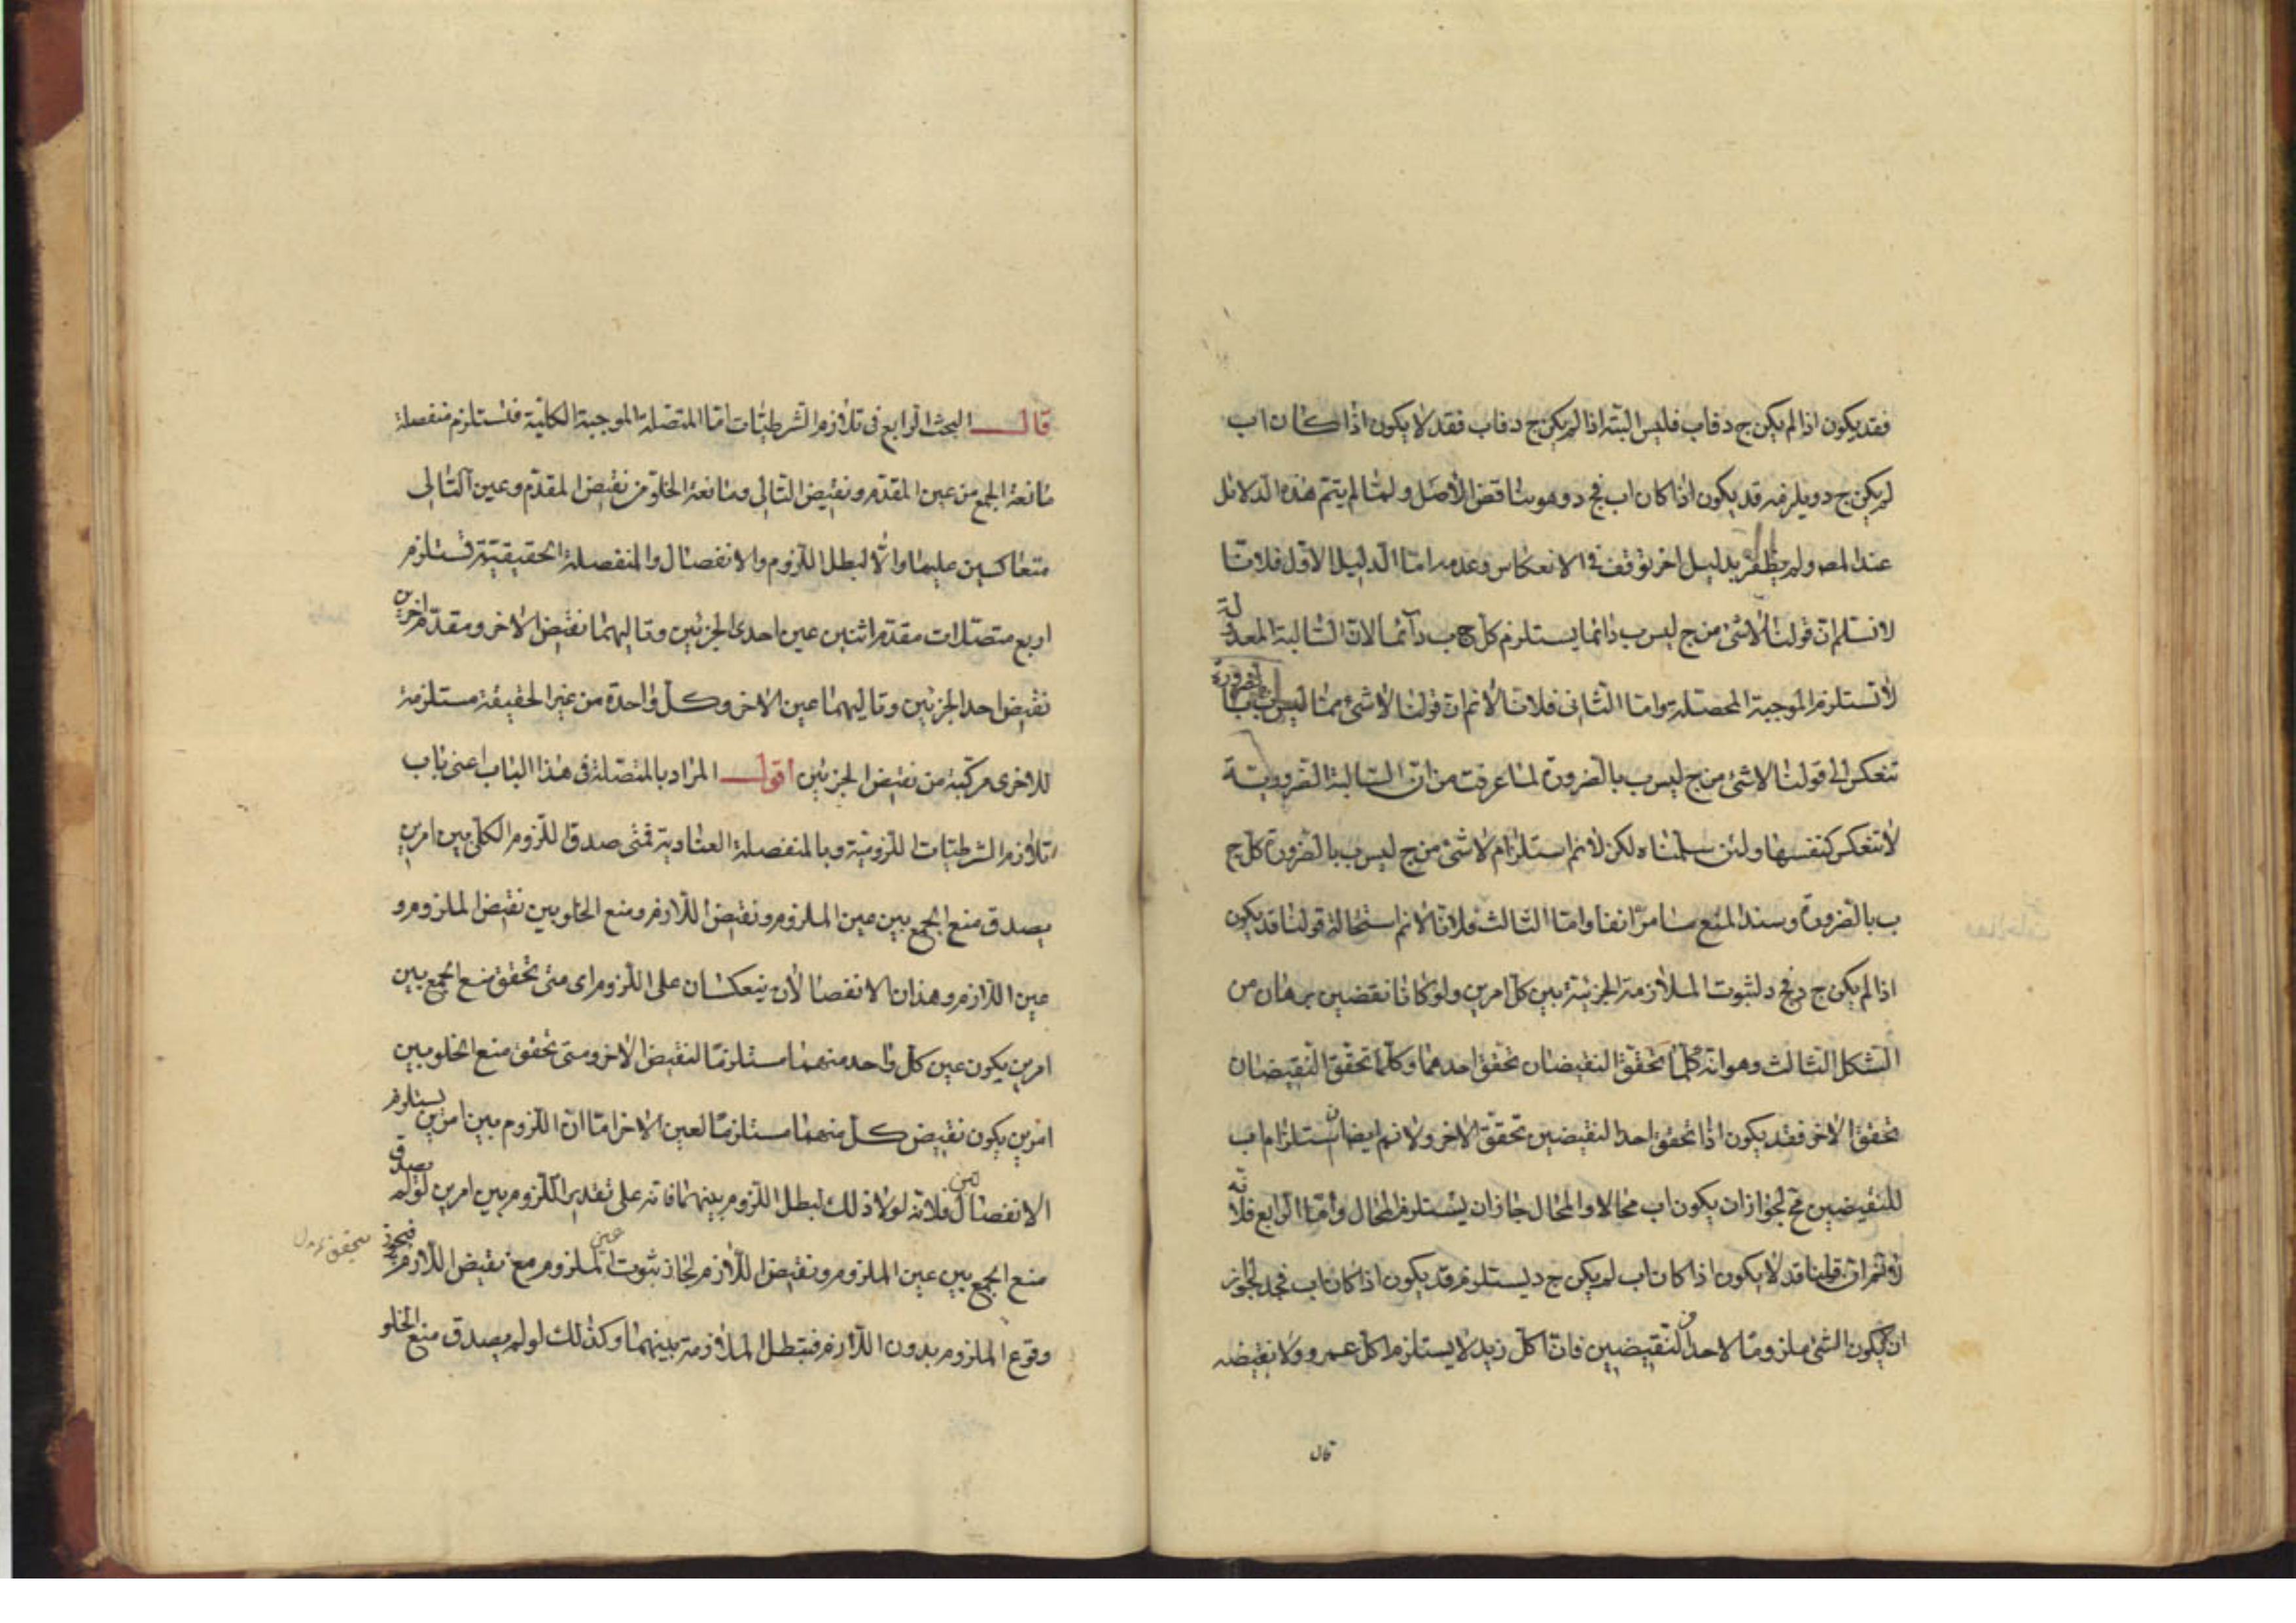 فقد يكون اذا لم يكن ج د فاب فليس البتة اذا لم يكن ج د فاب فقد لا يكون اذا كان اب
لم يكن ج د ويلزمه قد يكون اذا كان اب فج د وهو يناقض الاصل ولما لم يتم هذه الدلائل
عند المصـ ولم يظفر بدليل اخر توقف في الانعكاس وعدمه اما الدليل الاول فلانا
لا نسلم ان قولنا لا شئ من ج ليس ب دائما يستلزم كل ج ب دائما لان السالبة المعدولة
لا تستلزم الموجبة المحصلة واما الثاني فلانا لا نم ان قولنا لا شئ مما ليس ب ج بالضرورة
تنعكس الى قولنا لا شئ من ج ليس ب بالضرورة لما عرفت من ان السالبة الضرورية
لا تنعكس كنفسها ولئن سلمناه لكن لا نم استلزام لا شئ من ج ليس ب بالضرورة كل ج
ب بالضرورة وسند المنع ما مر انفا واما الثالث فلانا لا نم استحالة قولنا قد يكون
اذا لم يكن ج د فج د لثبوت الملازمة الجزئية بين كل امرين ولو كانا نقضين ببرهان من
الشكل الثالث وهو انه كلما تحقق النقيضان تحقق احدهما وكلما تحقق النقيضان
تحقق الاخر فقد يكون اذا تحقق احد النقيضين تحقق الاخر ولا نم ايضا ان استلزام اب
للنقيضين مح لجواز ان يكون اب محالا والمحال جاز ان يستلزم المحال واما الرابع فلانه
لا نم ان قولنا قد لا يكون اذا كان اب لم يكن ج د يستلزم قد يكون اذا كان اب فجد لجواز
ان لا يكون الشئ ملزوما لاحد النقيضين فان اكل زيد لا يستلزم اكل عمرو ولا نقيضه
قال
قال البحث الرابع في تلازم الشرطيات اما المتصلة الموجبة الكلية فتستلزم منفصلة
مانعة الجمع من عين المقدم ونقيض التالي ومانعة الخلو من نقيض المقدم وعين التالي
متعاكسين عليها والا لبطل اللزوم والانفصال والمنفصلة الحقيقية تستلزم
اربع متصلات مقدم اثنين عين احدى الجزئين وتاليهما نقيض الاخر ومقدم اخرين
نقيض احد الجزئين وتاليهما عين الاخر وكل واحدة من غير الحقيقة مستلزمة
للاخرى مركبة من نقيض الجزئين اقول المراد بالمتصلة في هذا الباب اعني باب
تلازم الشرطيات اللزومية وبالمنفصلة العنادية فمتى صدق اللزوم الكلي بين امرين
يصدق منع الجمع بين عين الملزوم ونقيض اللازم ومنع الخلو بين نقيض الملزوم و
عين اللازم وهذان الانفصالان ينعكسان على اللزوم اى متى تحقق منع الجمع بين
امرين يكون عين كل واحد منهما مستلزما لنقيض الاخر ومتى تحقق منع الخلو بين
امرين يكون نقيض كل منهما مستلزما لعين الاخر اما ان اللزوم بين امرين يستلزم
الانفصالين فلانه لولا ذلك لبطل اللزوم بينهما فانه على تقدير اللزوم بين امرين لو لم يصدق
منع الجمع بين عين الملزوم ونقيض اللازم لجاز ثبوت عين الملزوم مع نقيض اللازم فيجوز
وقوع الملزوم بدون اللازم فتبطل الملازمة بينهما وكذلك لو لم يصدق منع الخلو